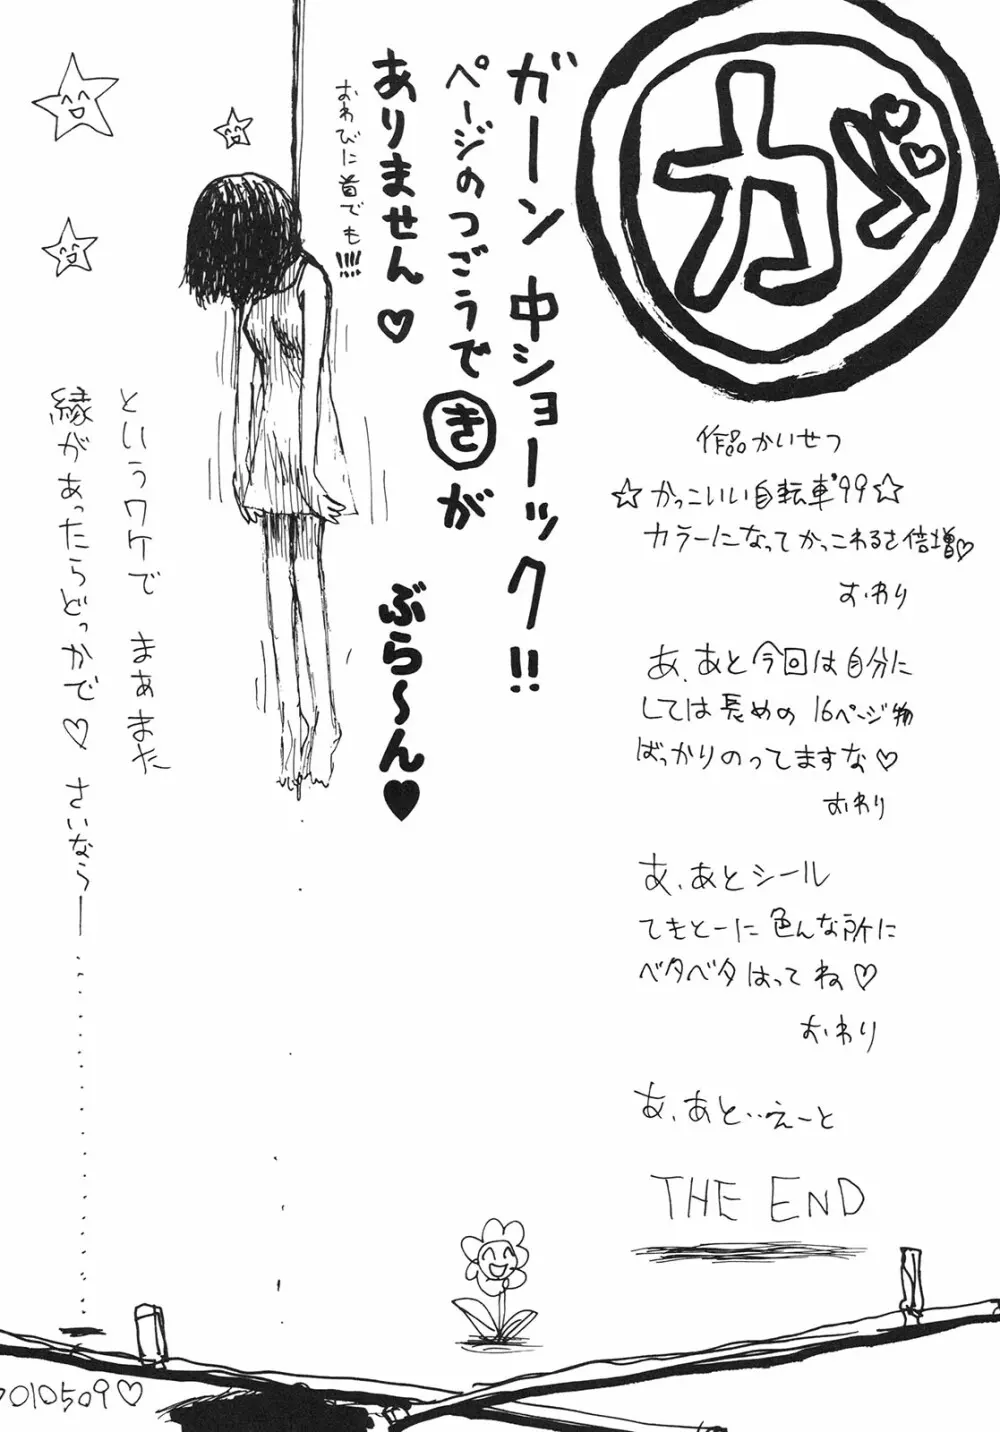 ガ
ガーン 中ショーック!!
ページのつごうで㋖が
ありません♡
おわびに首でも!!!!
ぶら〜ん♥
作品かいせつ
☆かっこいい自転車'99☆
カラーになってかっこわるさ倍増♡
おわり
あ、あと今回は自分に
しては長めの16ページ物
ばっかりのってますな♡
おわり
あ、あとシール
てきとーに色んな所に
ベタベタはってね♡
おわり
あ、あと‥えーと
THE END
というワケで まぁまた
縁があったらどっかで♡ さいならー…………
010509♡